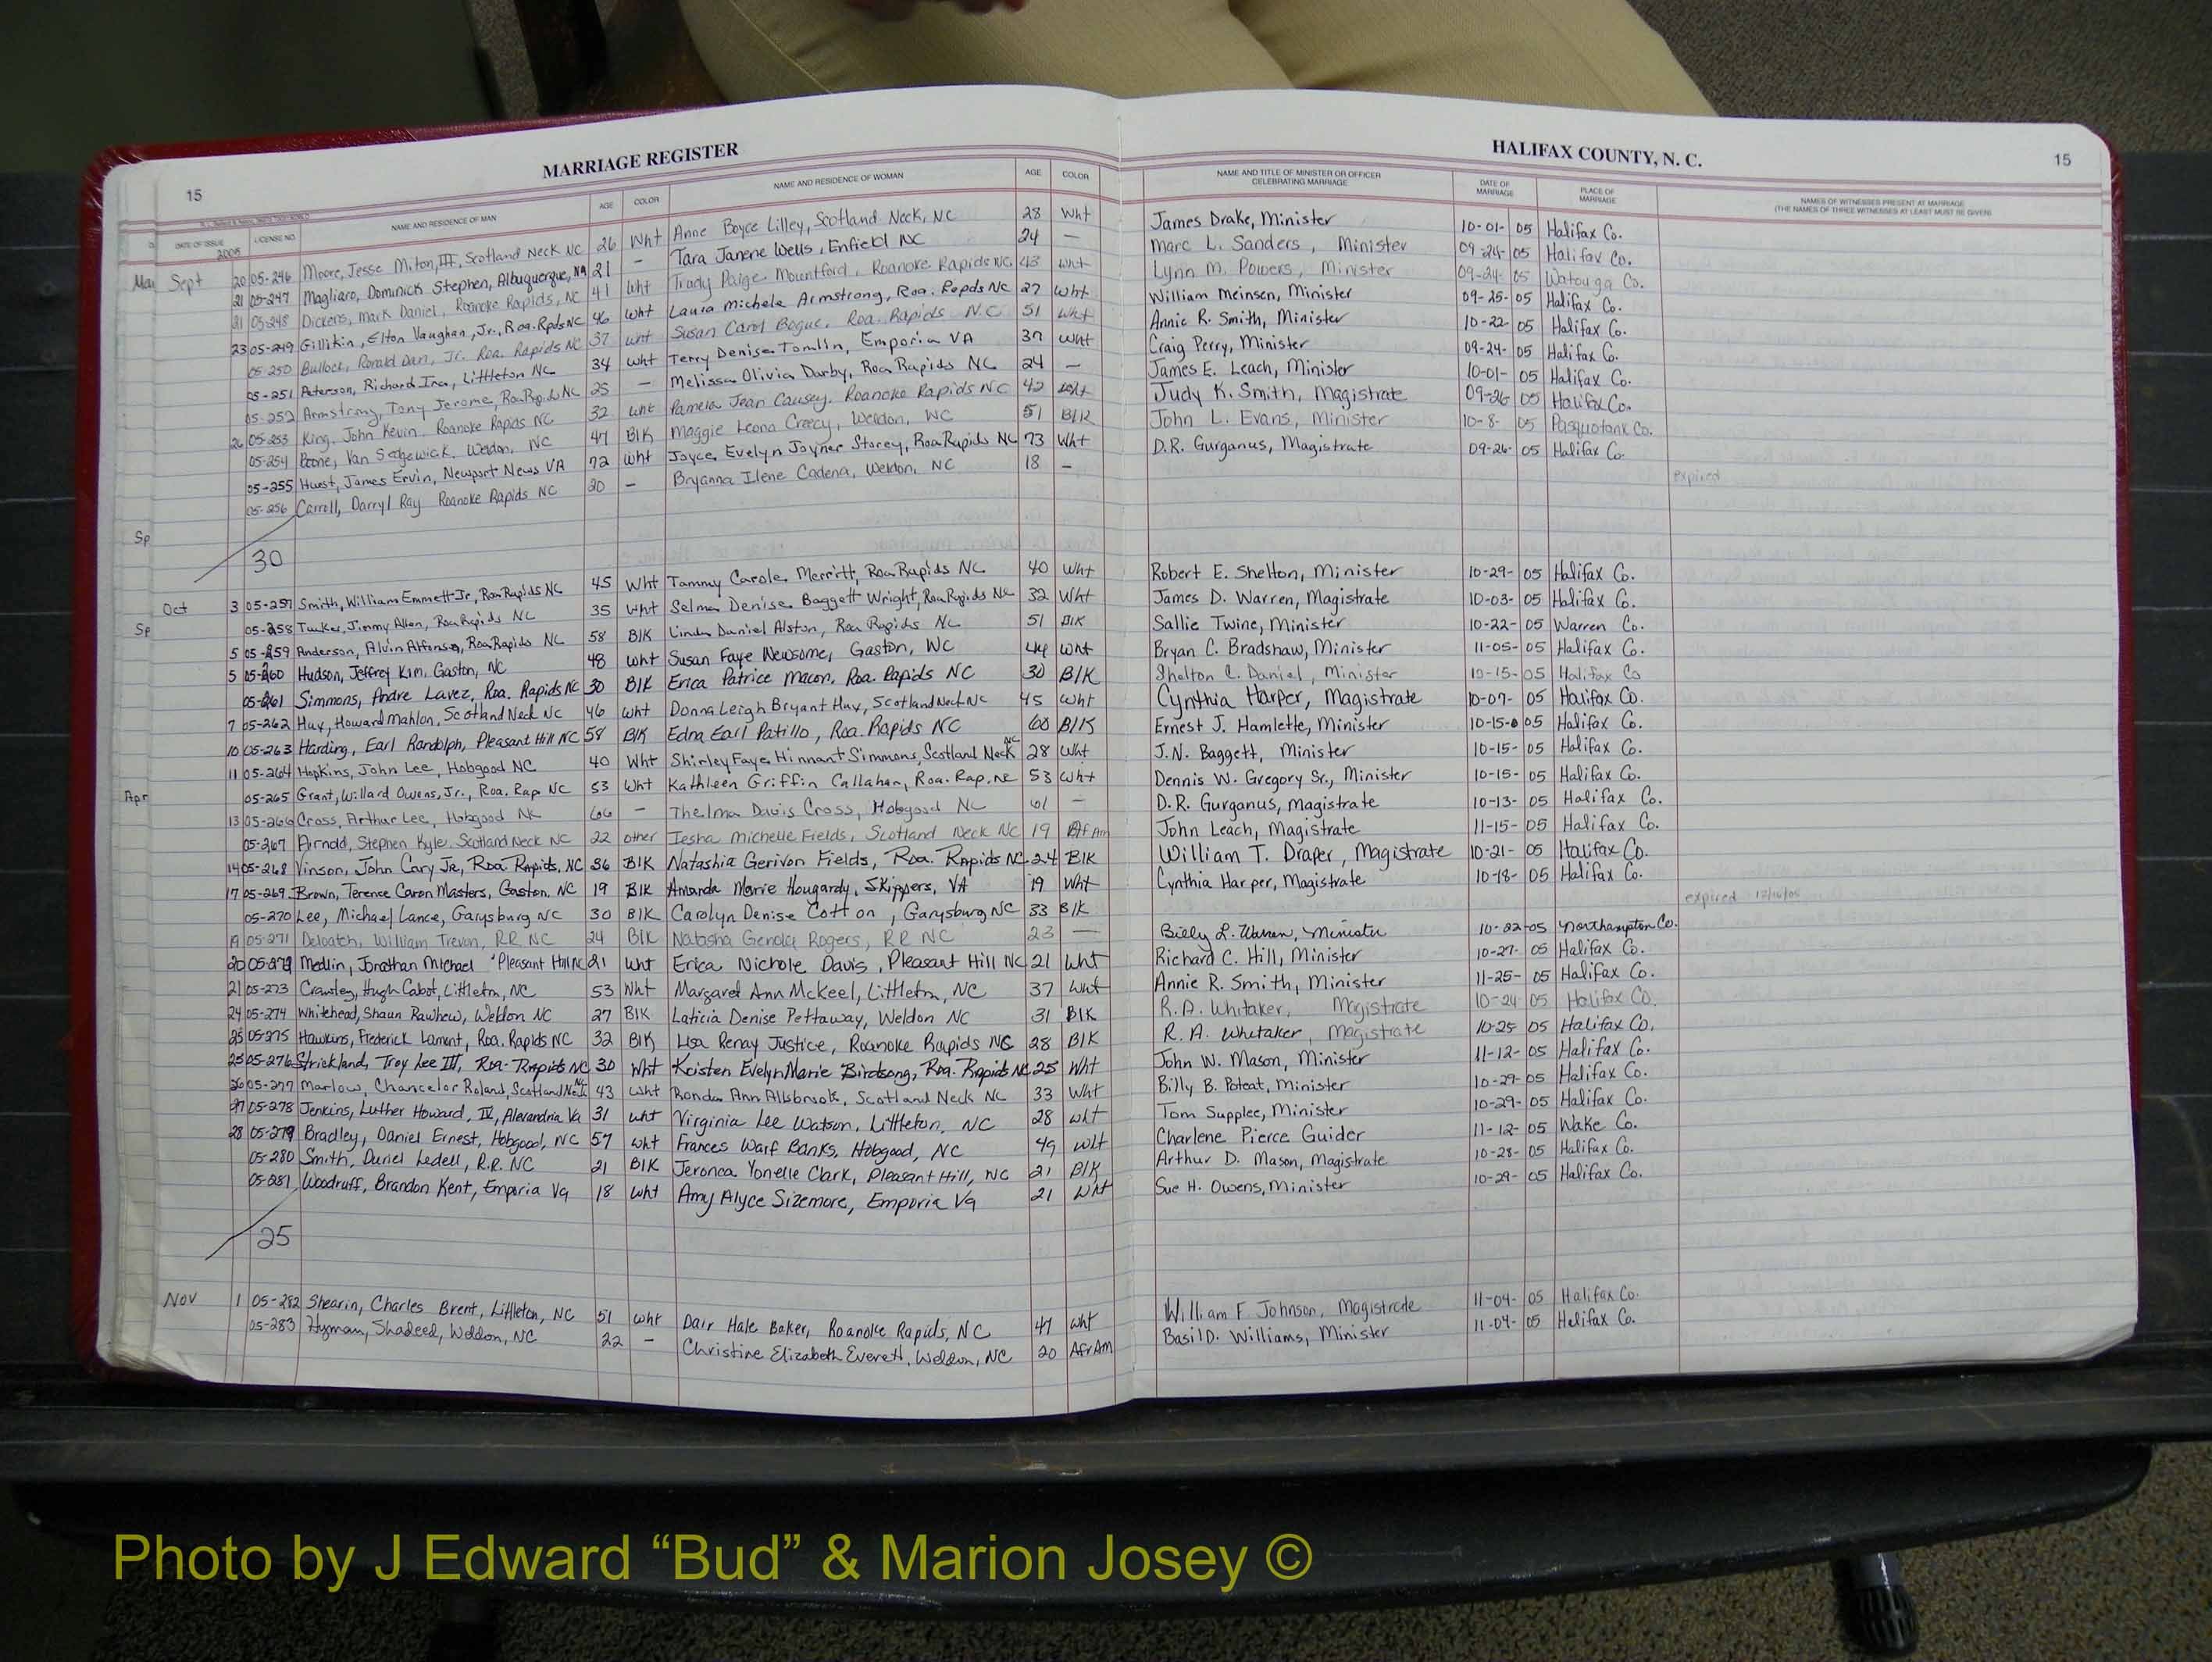 MARRIAGE REGISTER HALIFAX COUNTY, N. C.
15 15
DATE OF ISSUE LICENSE NO. NAME AND RESIDENCE OF MAN AGE COLOR NAME AND RESIDENCE OF WOMAN AGE COLOR NAME AND TITLE OF MINISTER OR OFFICER CELEBRATING MARRIAGE DATE OF MARRIAGE PLACE OF MARRIAGE NAMES OF WITNESSES PRESENT AT MARRIAGE (THE NAMES OF THREE WITNESSES AT LEAST MUST BE GIVEN)
2005
Sept 20 05-246 Moore, Jesse Milton, III, Scotland Neck NC 26 Wht Anne Boyce Lilley, Scotland Neck, NC 28 Wht James Drake, Minister 10-01-05 Halifax Co.
21 05-247 Magliaro, Dominick Stephen, Albuquerque, 21 — Tara Janene Wells, Enfield NC 24 — Marc L. Sanders, Minister 09-24-05 Halifax Co.
21 05-248 Dickens, Mark Daniel, Roanoke Rapids, NC 41 Wht Trudy Paige Mountford, Roanoke Rapids NC 43 wht Lynn M. Powers, Minister 09-24-05 Watauga Co.
23 05-249 Gillikin, Elton Vaughan, Jr., Roa. Rpds NC 46 wht Laura Michele Armstrong, Roa. Rapds NC 27 Wht William Meinsen, Minister 09-25-05 Halifax Co.
05-250 Bullock, Ronald Dan, Jr. Roa. Rapids NC 37 wht Susan Carol Bogue, Roa. Rapids N.C 51 Wht Annie R. Smith, Minister 10-22-05 Halifax Co.
05-251 Peterson, Richard Ira, Littleton NC 34 wht Terry Denise Tomlin, Emporia VA 37 Wht Craig Perry, Minister 09-24-05 Halifax Co.
05-252 Armstrong, Tony Jerome, Roa Rapids NC 25 — Melissa Olivia Darby, Roa Rapids NC 24 — James E. Leach, Minister 10-01-05 Halifax Co.
26 05-253 King, John Kevin, Roanoke Rapids NC 32 wht Pamela Jean Causey, Roanoke Rapids NC 42 wht Judy K. Smith, Magistrate 09-26 05 Halifax Co.
05-254 Boone, Van Sedgewick, Weldon, NC 47 Blk Maggie Leona Creecy, Weldon, NC 51 Blk John L. Evans, Minister 10-8-05 Pasquotank Co.
05-255 Hurst, James Ervin, Newport News VA 72 wht Joyce Evelyn Joyner Storey, Roa Rapids NC 73 Wht D.R. Gurganus, Magistrate 09-26-05 Halifax Co.
05-256 Carroll, Darryl Ray Roanoke Rapids NC 20 — Bryanna Ilene Cadena, Weldon, NC 18 — expired
Sp
30
Oct 3 05-257 Smith, William Emmett Jr, Roa Rapids NC 45 Wht Tammy Carole Merritt, Roa Rapids NC 40 Wht Robert E. Shelton, Minister 10-29-05 Halifax Co.
Sp 05-258 Tucker, Jimmy Allen, Roa Rapids NC 35 Wht Selma Denise Baggett Wright, Roa Rapids NC 32 Wht James D. Warren, Magistrate 10-03-05 Halifax Co.
5 05-259 Anderson, Alvin Alfonso, Roa Rapids NC 58 Blk Linda Daniel Alston, Roa Rapids NC 51 Blk Sallie Twine, Minister 10-22-05 Warren Co.
5 05-260 Hudson, Jeffrey Kim, Gaston, NC 48 wht Susan Faye Newsome, Gaston, NC 44 wht Bryan C. Bradshaw, Minister 11-05-05 Halifax Co.
05-261 Simmons, Andre Lavez, Roa. Rapids NC 30 Blk Erica Patrice Macon, Roa. Rapids NC 30 Blk Shelton C. Daniel, Minister 10-15-05 Halifax Co
7 05-262 Hux, Howard Mahlon, Scotland Neck NC 46 wht Donna Leigh Bryant Hux, Scotland Neck NC 45 Wht Cynthia Harper, Magistrate 10-07-05 Halifax Co.
10 05-263 Harding, Earl Randolph, Pleasant Hill NC 58 Blk Edna Earl Patillo, Roa. Rapids NC 60 Blk Ernest J. Hamlette, Minister 10-15-05 Halifax Co.
11 05-264 Hopkins, John Lee, Hobgood NC 40 Wht Shirley Faye Hinnant Simmons, Scotland Neck NC 28 Wht J.N. Baggett, Minister 10-15-05 Halifax Co.
Apr 05-265 Grant, Willard Owens, Jr., Roa. Rap NC 53 Wht Kathleen Griffin Callahan, Roa. Rap. NC 53 Wht Dennis W. Gregory Sr., Minister 10-15-05 Halifax Co.
13 05-266 Cross, Arthur Lee, Hobgood NC 66 — Thelma Davis Cross, Hobgood NC 61 — D.R. Gurganus, Magistrate 10-13-05 Halifax Co.
05-267 Arnold, Stephen Kyle, Scotland Neck NC 22 other Iesha Michelle Fields, Scotland Neck NC 19 Af Am John Leach, Magistrate 11-15-05 Halifax Co.
14 05-268 Vinson, John Cary Jr, Roa. Rapids, NC 36 Blk Natashia Gerivon Fields, Roa. Rapids NC 24 Blk William T. Draper, Magistrate 10-21-05 Halifax Co.
17 05-269 Brown, Terence Caron Masters, Gaston, NC 19 Blk Amanda Marie Hougardy, Skippers, VA 19 Wht Cynthia Harper, Magistrate 10-18-05 Halifax Co.
05-270 Lee, Michael Lance, Garysburg NC 30 Blk Carolyn Denise Cotton, Garysburg NC 33 Blk expired 12/16/05
19 05-271 Deloatch, William Trevon, RR NC 24 Blk Natasha Genola Rogers, RR NC 23 — Billy L. Warren, Minister 10-22-05 Northampton Co.
20 05-272 Medlin, Jonathan Michael Pleasant Hill NC 21 wht Erica Nichole Davis, Pleasant Hill NC 21 Wht Richard C. Hill, Minister 10-27-05 Halifax Co.
21 05-273 Crawley, Hugh Cabot, Littleton, NC 53 Wht Margaret Ann McKeel, Littleton, NC 37 Wht Annie R. Smith, Minister 11-25-05 Halifax Co.
24 05-274 Whitehead, Shaun Rawhew, Weldon NC 27 Blk Laticia Denise Pettaway, Weldon NC 31 Blk R.A. Whitaker, Magistrate 10-24 05 Halifax Co.
25 05-275 Hawkins, Frederick Lamont, Roa. Rapids NC 32 Blk Lisa Renay Justice, Roanoke Rapids NC 28 Blk R. A. Whitaker, Magistrate 10-25 05 Halifax Co.
25 05-276 Strickland, Troy Lee III, Roa. Rapids NC 30 Wht Kristen Evelyn Marie Birdsong, Roa. Rapids NC 25 Wht John W. Mason, Minister 11-12-05 Halifax Co.
26 05-277 Marlow, Chancelor Roland, Scotland Neck NC 43 wht Ronda Ann Allsbrook, Scotland Neck NC 33 Wht Billy B. Poteat, Minister 10-29-05 Halifax Co.
27 05-278 Jenkins, Luther Howard, IV, Alexandria Va 31 wht Virginia Lee Watson, Littleton, NC 28 wht Tom Supplee, Minister 10-29-05 Halifax Co.
28 05-279 Bradley, Daniel Ernest, Hobgood, NC 57 wht Frances Warf Banks, Hobgood, NC 49 wht Charlene Pierce Guider 11-12-05 Wake Co.
05-280 Smith, Duriel Ledell, R.R. NC 21 Blk Jeronca Yonelle Clark, Pleasant Hill, NC 21 Blk Arthur D. Mason, Magistrate 10-28-05 Halifax Co.
05-281 Woodruff, Brandon Kent, Emporia Va 18 wht Amy Alyce Sizemore, Emporia Va 21 wht Sue H. Owens, Minister 10-29-05 Halifax Co.
25
Nov 1 05-282 Shearin, Charles Brent, Littleton, NC 51 wht Dair Hale Baker, Roanoke Rapids, NC 47 wht William F. Johnson, Magistrate 11-04-05 Halifax Co.
05-283 Hyman, Shadeed, Weldon, NC 22 — Christine Elizabeth Everett, Weldon, NC 20 AfrAm Basil D. Williams, Minister 11-04-05 Halifax Co.
Photo by J Edward “Bud” & Marion Josey ©